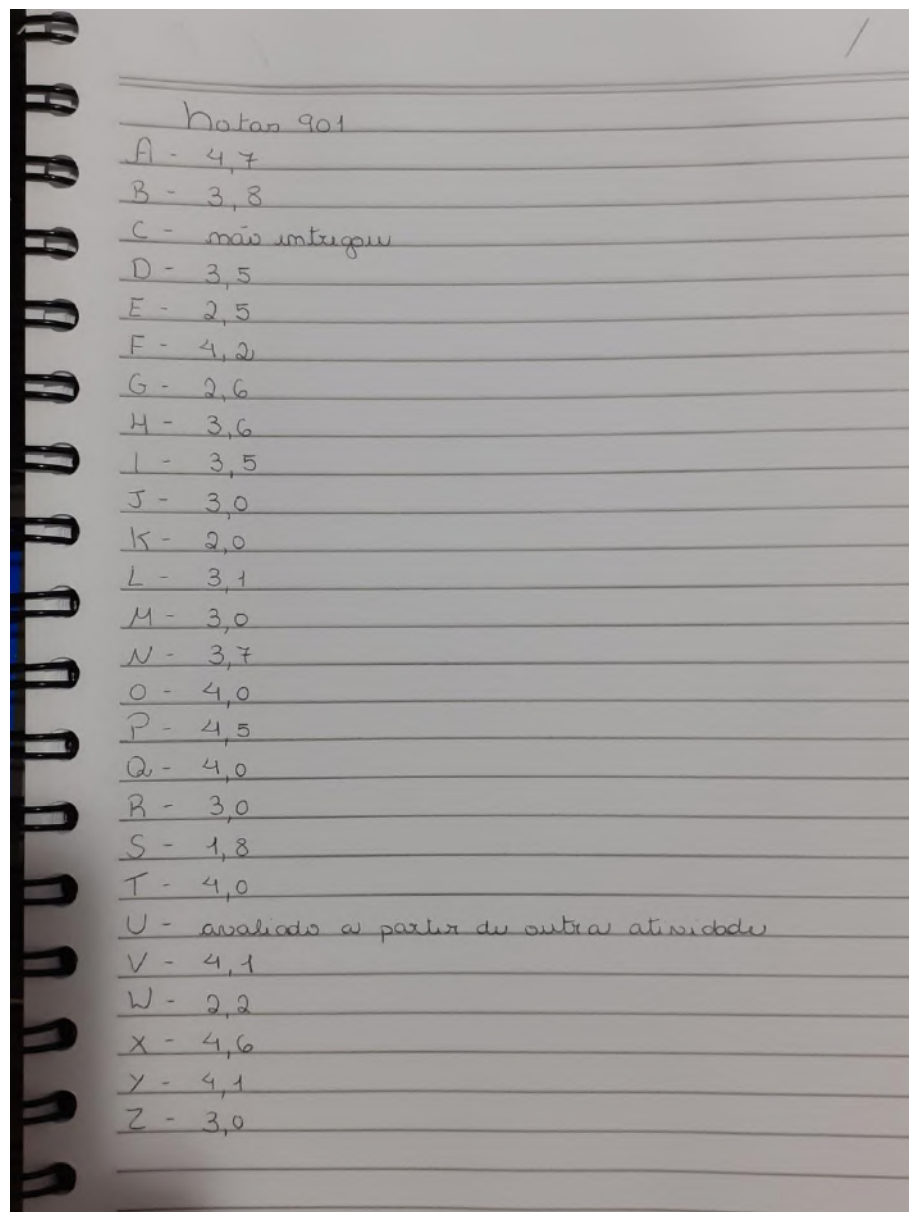 Notas 901
A - 4,7
B - 3,8
C - não entregou
D - 3,5
E - 2,5
F - 4,2
G - 2,6
H - 3,6
I - 3,5
J - 3,0
K - 2,0
L - 3,1
M - 3,0
N - 3,7
O - 4,0
P - 4,5
Q - 4,0
R - 3,0
S - 1,8
T - 4,0
U - avaliado a partir de outra atividade
V - 4,1
W - 2,2
X - 4,6
Y - 4,1
Z - 3,0